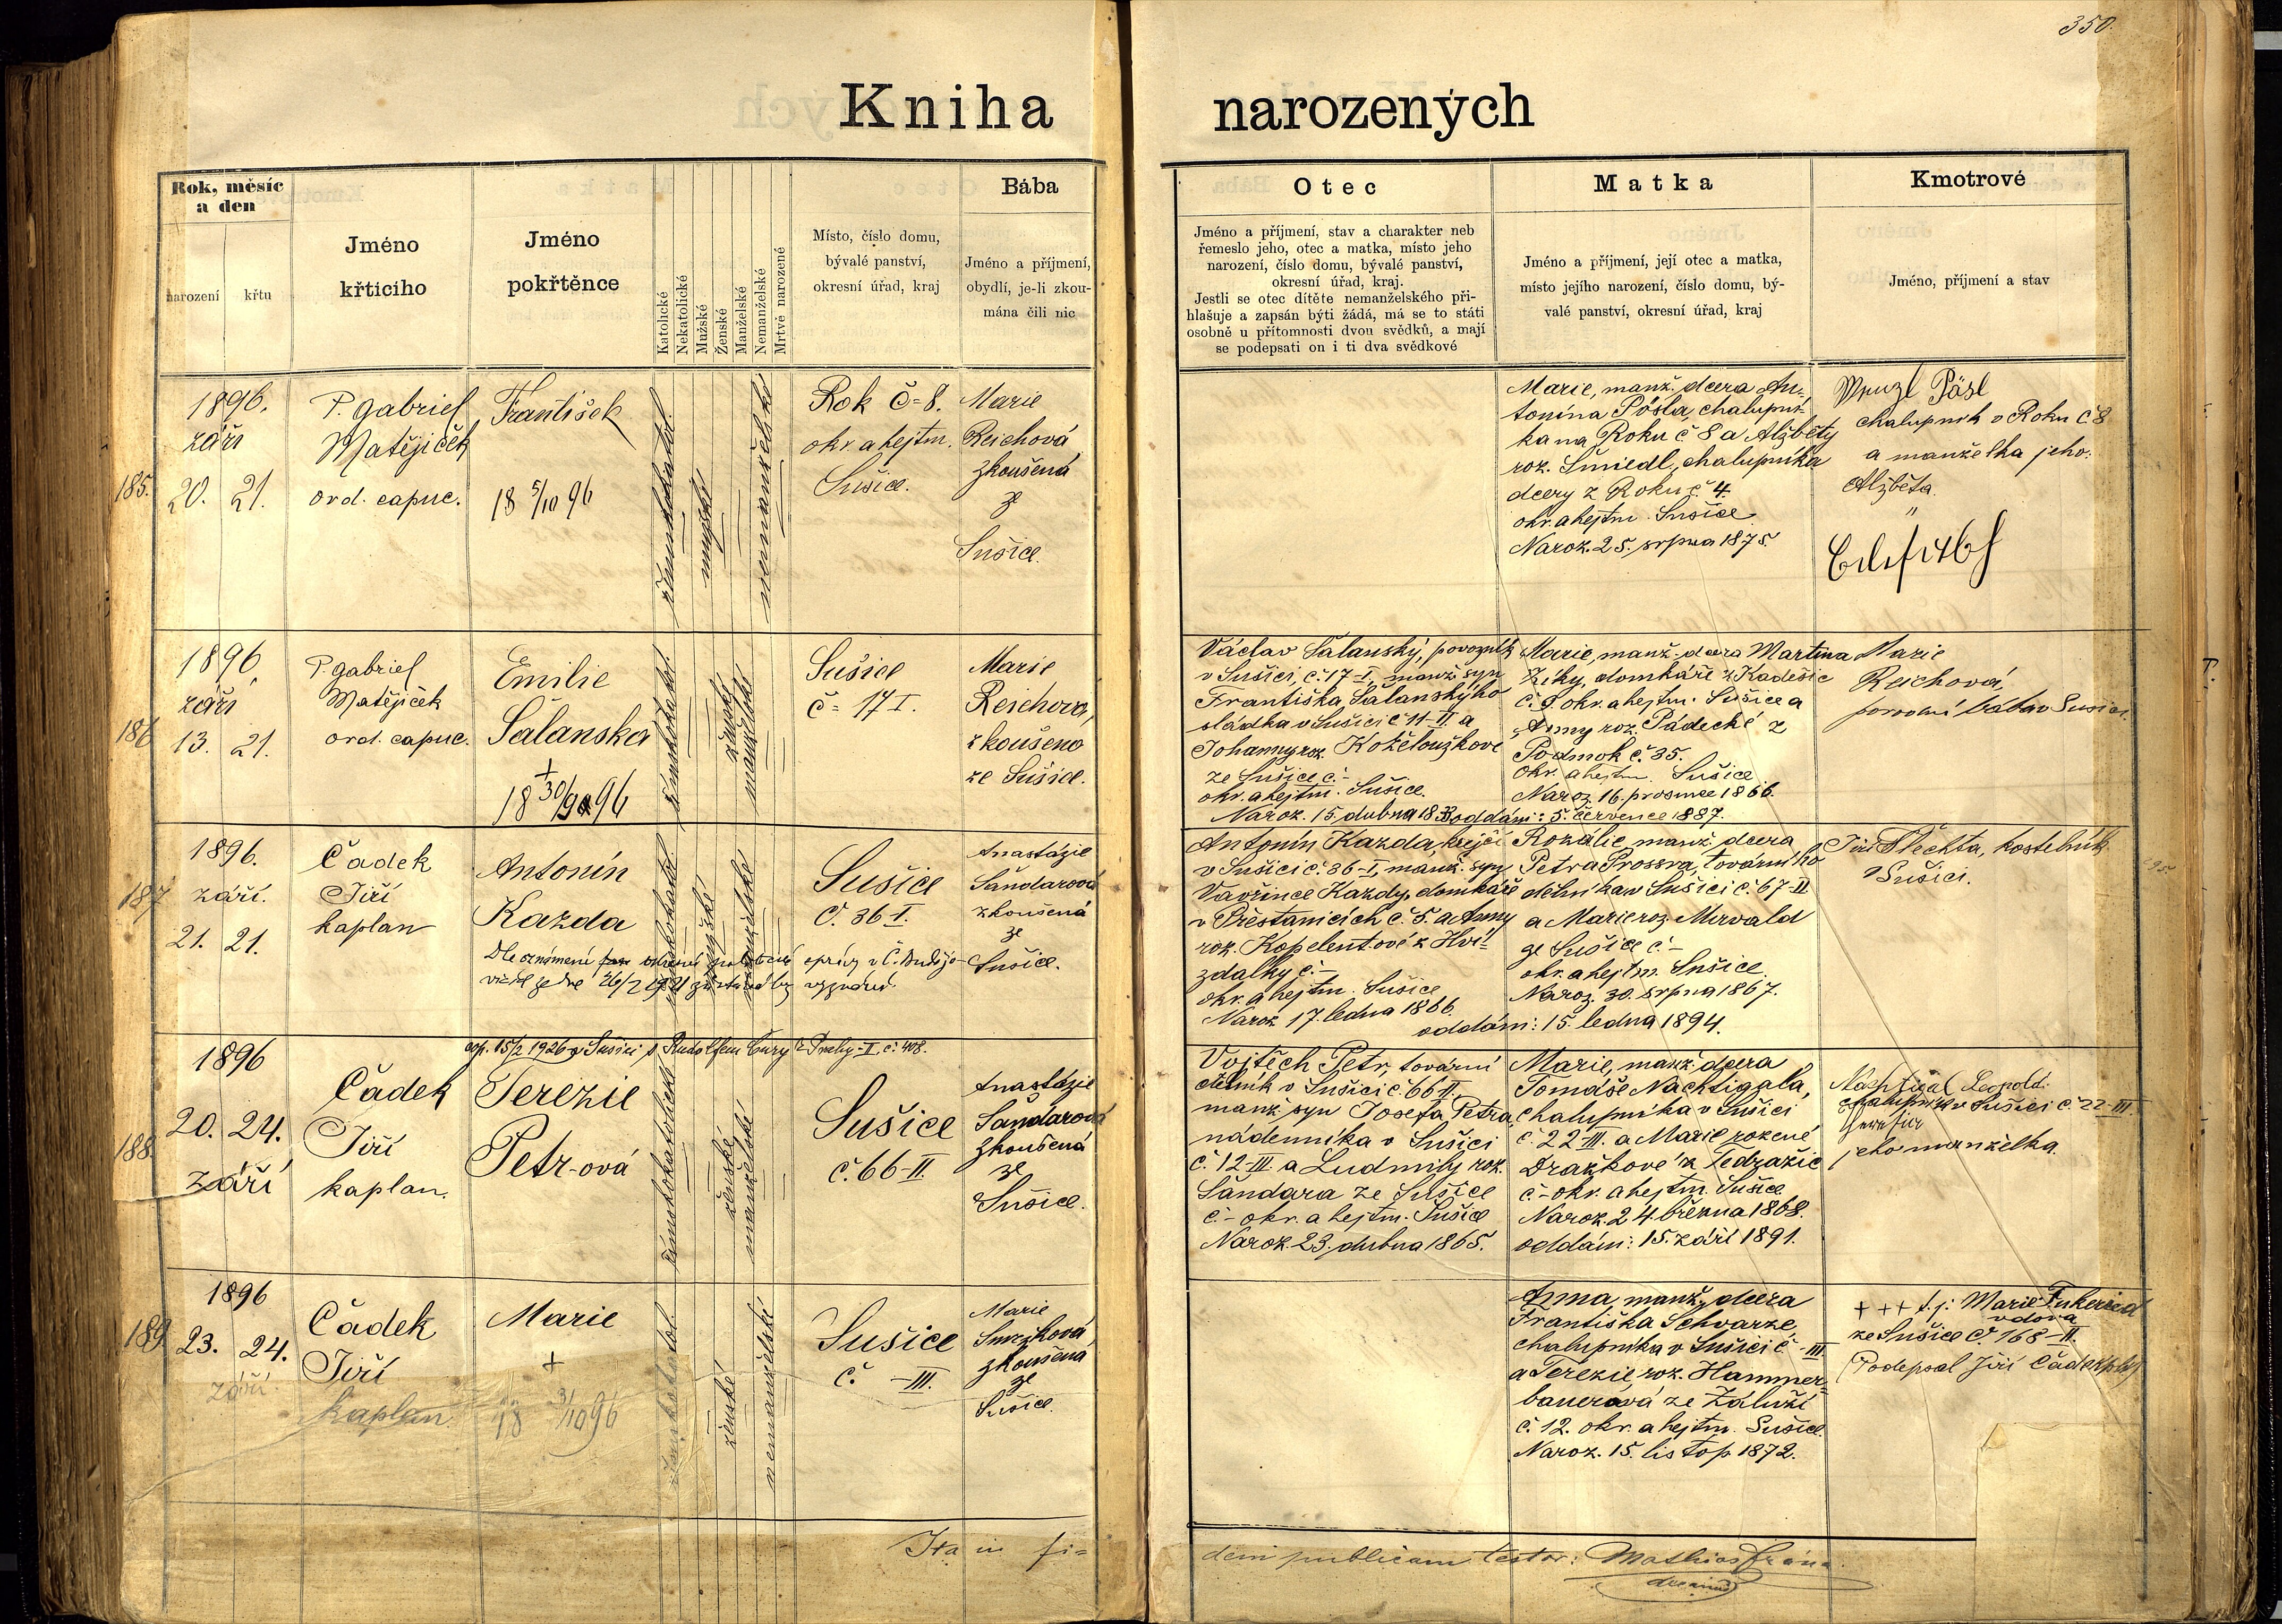 350.
Kniha narozených
Rok, měsíc
a den
narození
křtu
Jméno
křticiho
Jméno
pokřtěnce
Katolické
Nekatolické
Mužské
Ženské
Manželské
Nemanželské
Mrtvě narozené
Místo, číslo domu,
bývalé panství,
okresní úřad, kraj
Bába
Jméno a příjmení,
obydlí, je-li zkou-
mána čili nic
Otec
Jméno a příjmení, stav a charakter neb
řemeslo jeho, otec a matka, místo jeho
narození, číslo domu, bývalé panství,
okresní úřad, kraj.
Jestli se otec dítěte nemanželského při-
hlašuje a zapsán býti žádá, má se to státi
osobně u přítomnosti dvou svědků, a mají
se podepsati on i ti dva svědkové
Matka
Jméno a příjmení, její otec a matka,
místo jejího narození, číslo domu, bý-
valé panství, okresní úřad, kraj
Kmotrové
Jméno, příjmení a stav
185.
1896.
září
20. 21.
P. Gabriel
Matějíček
ord. capuc.
František
18 5/10 96
mužské
nemanželské
Rok č=8.
okr. a hejtm.
Sušice.
Marie
Reichová
zkoušená
ze
Sušice.
Marie, manž. dcera An-
tonína Pösla, chalupní-
ka na Roku č 8 a Alžběty
roz. Šmiedl, chalupníka
dcery z Roku č. 4.
okr. a hejtm. Sušice
Naroz. 25. srpna 1875.
Wenzl Pösl
chalupník v Roku č 8
a manželka jeho:
Alžběta
"
186
1896,
září
13. 21.
P. Gabriel
Matějíček
ord. capuc.
Emilie
Šalanská
+
18 30/9 96
ženské
manželské
Sušice
č= 17 I.
Marie
Reichova,
zkoušena
ze Sušice.
Václav Šalanský, povozník
v Sušici, č. 17-I, manž. syn
Františka Šalanskýho
sládka v Sušici č 11-II a
Johanny roz. Koželoužkove
ze Sušice č.-
okr. a hejtm. Sušice.
Naroz. 15. dubna 18
Marie, manž. dcera Martina
Ziky, domkáře z Kadešic
č. 9 okr. a hejtm. Sušice a
Anny roz. Pádecké z
Podmok č. 35.
okr. a hejtm. Sušice
Naroz. 16. prosince 1866.
oddáni: 5. července 1887.
Marie
Reichová,
porodní bába v Sušici.
187
1896.
září.
21. 21.
Čadek
Jiří
kaplan
Antonín
Kazda
Dle oznámení
mužské
manželské
Sušice
č. 36-I.
Anastázie
Šandarová
zkoušená
ze
Sušice.
Antonín Kazda, krejčí
v Sušici č. 36-I, manž. syn
Vavřince Kazdy, domkáře
v Přestanicích č. 5. a Anny
roz. Kopelentové z Hvi-
zdalky č.-
okr. a hejtm. Sušice
Naroz. 17. ledna 1866.
Rozálie, manž. dcera
Petra Prossra, továrního
dělníka v Sušici č. 67-II
a Marie roz. Mirvald
ze Sušice č.-
okr. a hejtm. Sušice.
Naroz. 30. srpna 1867.
oddáni: 15. ledna 1894.
Jiří Šlechta, kostelník
v Sušici.
188.
1896
20. 24.
září
Čadek
Jiří
kaplan.
cop. 15/2 1926 v Sušici s Rudolfem z Prahy-I, č. 408.
Terezie
Petr-ová
ženské
manželské
Sušice
č. 66-II.
Anastázie
Šandarová
zkoušená
ze
Sušice.
Vojtěch Petr, tovární
dělník v Sušici č. 66 II.
manž. syn Josefa Petra,
nádenníka v Sušici
č. 12-III a Ludmily roz.
Šandara ze Sušice
č.- okr. a hejtm. Sušice
Naroz. 23. dubna 1865.
Marie, manž. dcera
Tomáše Nachtigala,
chalupníka v Sušici
č. 22-III. a Marie rozené
Dražkové z Tedražic
č.- okr. a hejtm. Sušice.
Naroz. 24. března 1868.
oddáni: 15. září 1891.
Nachtigal Leopold.
chalupník v Sušici č. 22-III.
jeho manželka.
189
1896
23. 24.
září
Čadek
Jiří
kaplan
Marie
+
18 3/10 96
ženské
nemanželské
Sušice
č. -III.
Marie
Smržková
zkoušená
ze
Sušice.
Anna, manž. dcera
Františka Schvarze,
chalupníka v Sušici č.-III.
a Terezie, roz. Hammer-
bauerová ze Záluží
č. 12. okr. a hejtm. Sušice.
Naroz. 15. listop. 1872.
+++ t. j. Marie
vdova
ze Sušice č. 168-II.
(Podepsal Jiří Čadek
Ita in fi=
dem publicam testor: Mathias
decanus